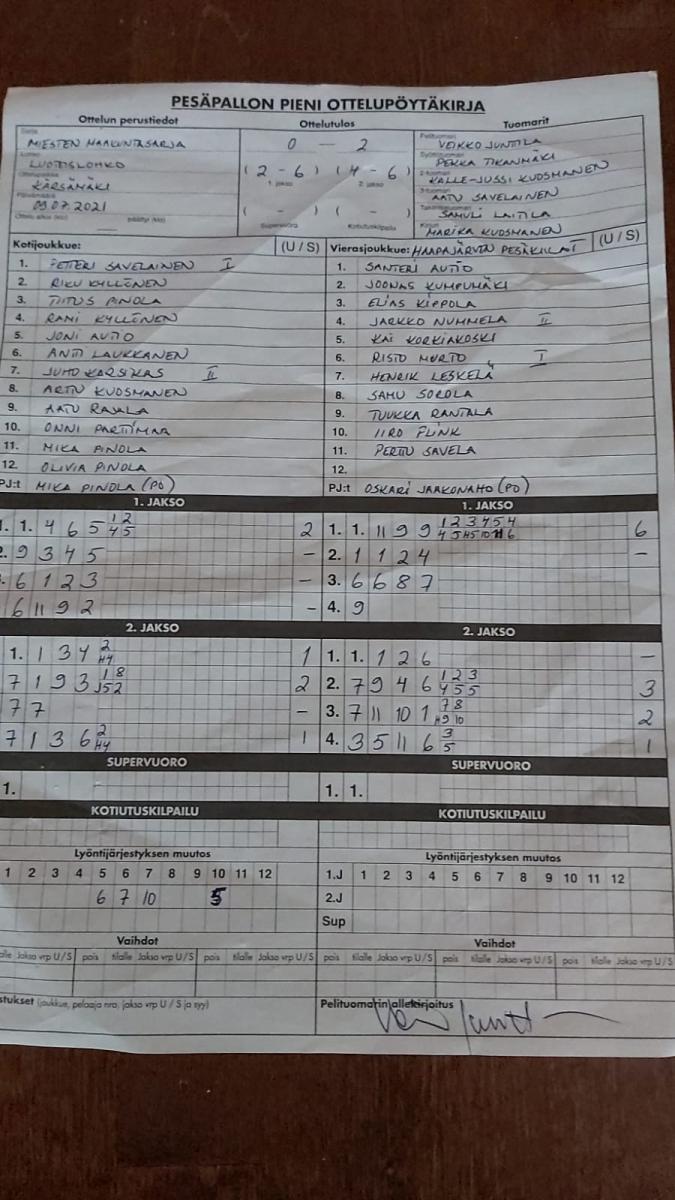 PESÄPALLON PIENI OTTELUPÖYTÄKIRJA
Ottelun perustiedot Ottelutulos Tuomarit
MIESTEN MAAKUNTASARJA 0 — 2 VEIKKO JUNTILA
LOHKO (2 - 6) (4 - 6) PEKKA TIKANMÄKI
1. jakso 2. jakso KALLE-JUSSI KUOSMANEN
KÄRSÄMÄKI AATU SAVELAINEN
09.07.2021 ( - ) ( - ) SAMULI LAITILA
Supervuoro Kotiutuskilpailu MARIKA KUOSMANEN
Kotijoukkue: (U / S) Vierasjoukkue: HAAPAJÄRVEN PESÄKIILAT (U / S)
1. PETTERI SAVELAINEN I 1. SANTERI AUTIO
2. RIKU KYLLÖNEN 2. JOONAS KUMPUMÄKI
3. TIITUS PINOLA 3. ELIAS KIPPOLA
4. RAMI KYLLÖNEN 4. JARKKO NUMMELA II
5. JONI AUTIO 5. KAI KORKIAKOSKI
6. ANTTI LAUKKANEN 6. RISTO MURTO I
7. JUHO KARSIKAS II 7. HENRIK LESKELÄ
8. ARTTU KUOSMANEN 8. SAMU SOROLA
9. AATU RAJALA 9. TUUKKA RANTALA
10. ONNI PARTTIMAA 10. IIRO FLINK
11. MIKA PINOLA 11. PERTTU SAVELA
12. OLIVIA PINOLA 12.
PJ:t MIKA PINOLA (PO) PJ:t OSKARI JAAKONAHO (PO)
1. JAKSO 1. JAKSO
1. 1. 4 6 5 1 2 4 5 2 1. 1. 11 9 9 1 2 3 4 5 4 6
2. 9 3 4 5 – 2. 1 1 2 4 –
6 1 2 3 – 3. 6 6 8 7
6 11 9 2 – 4. 9
2. JAKSO 2. JAKSO
1. 1 3 4 2 H4 1 1. 1. 1 2 6 –
7 1 9 3 1 8 J5 2 2 2. 7 9 4 6 1 2 3 4 5 5 3
7 7 – 3. 7 11 10 1 7 8 H9 10 2
7 1 3 6 2 H4 1 4. 3 5 11 6 3 5 1
SUPERVUORO SUPERVUORO
1. 1. 1.
KOTIUTUSKILPAILU KOTIUTUSKILPAILU
Lyöntijärjestyksen muutos Lyöntijärjestyksen muutos
1 2 3 4 5 6 7 8 9 10 11 12 1.J 1 2 3 4 5 6 7 8 9 10 11 12
6 7 10 5 2.J
Sup
Vaihdot Vaihdot
Jakso vrp U / S pois tilalle Jakso vrp U / S pois tilalle Jakso vrp U / S pois tilalle Jakso vrp U / S pois tilalle Jakso vrp U / S pois tilalle Jakso vrp U / S
(joukkue, pelaaja nro, jakso vrp U / S ja syy) Pelituomarin allekirjoitus